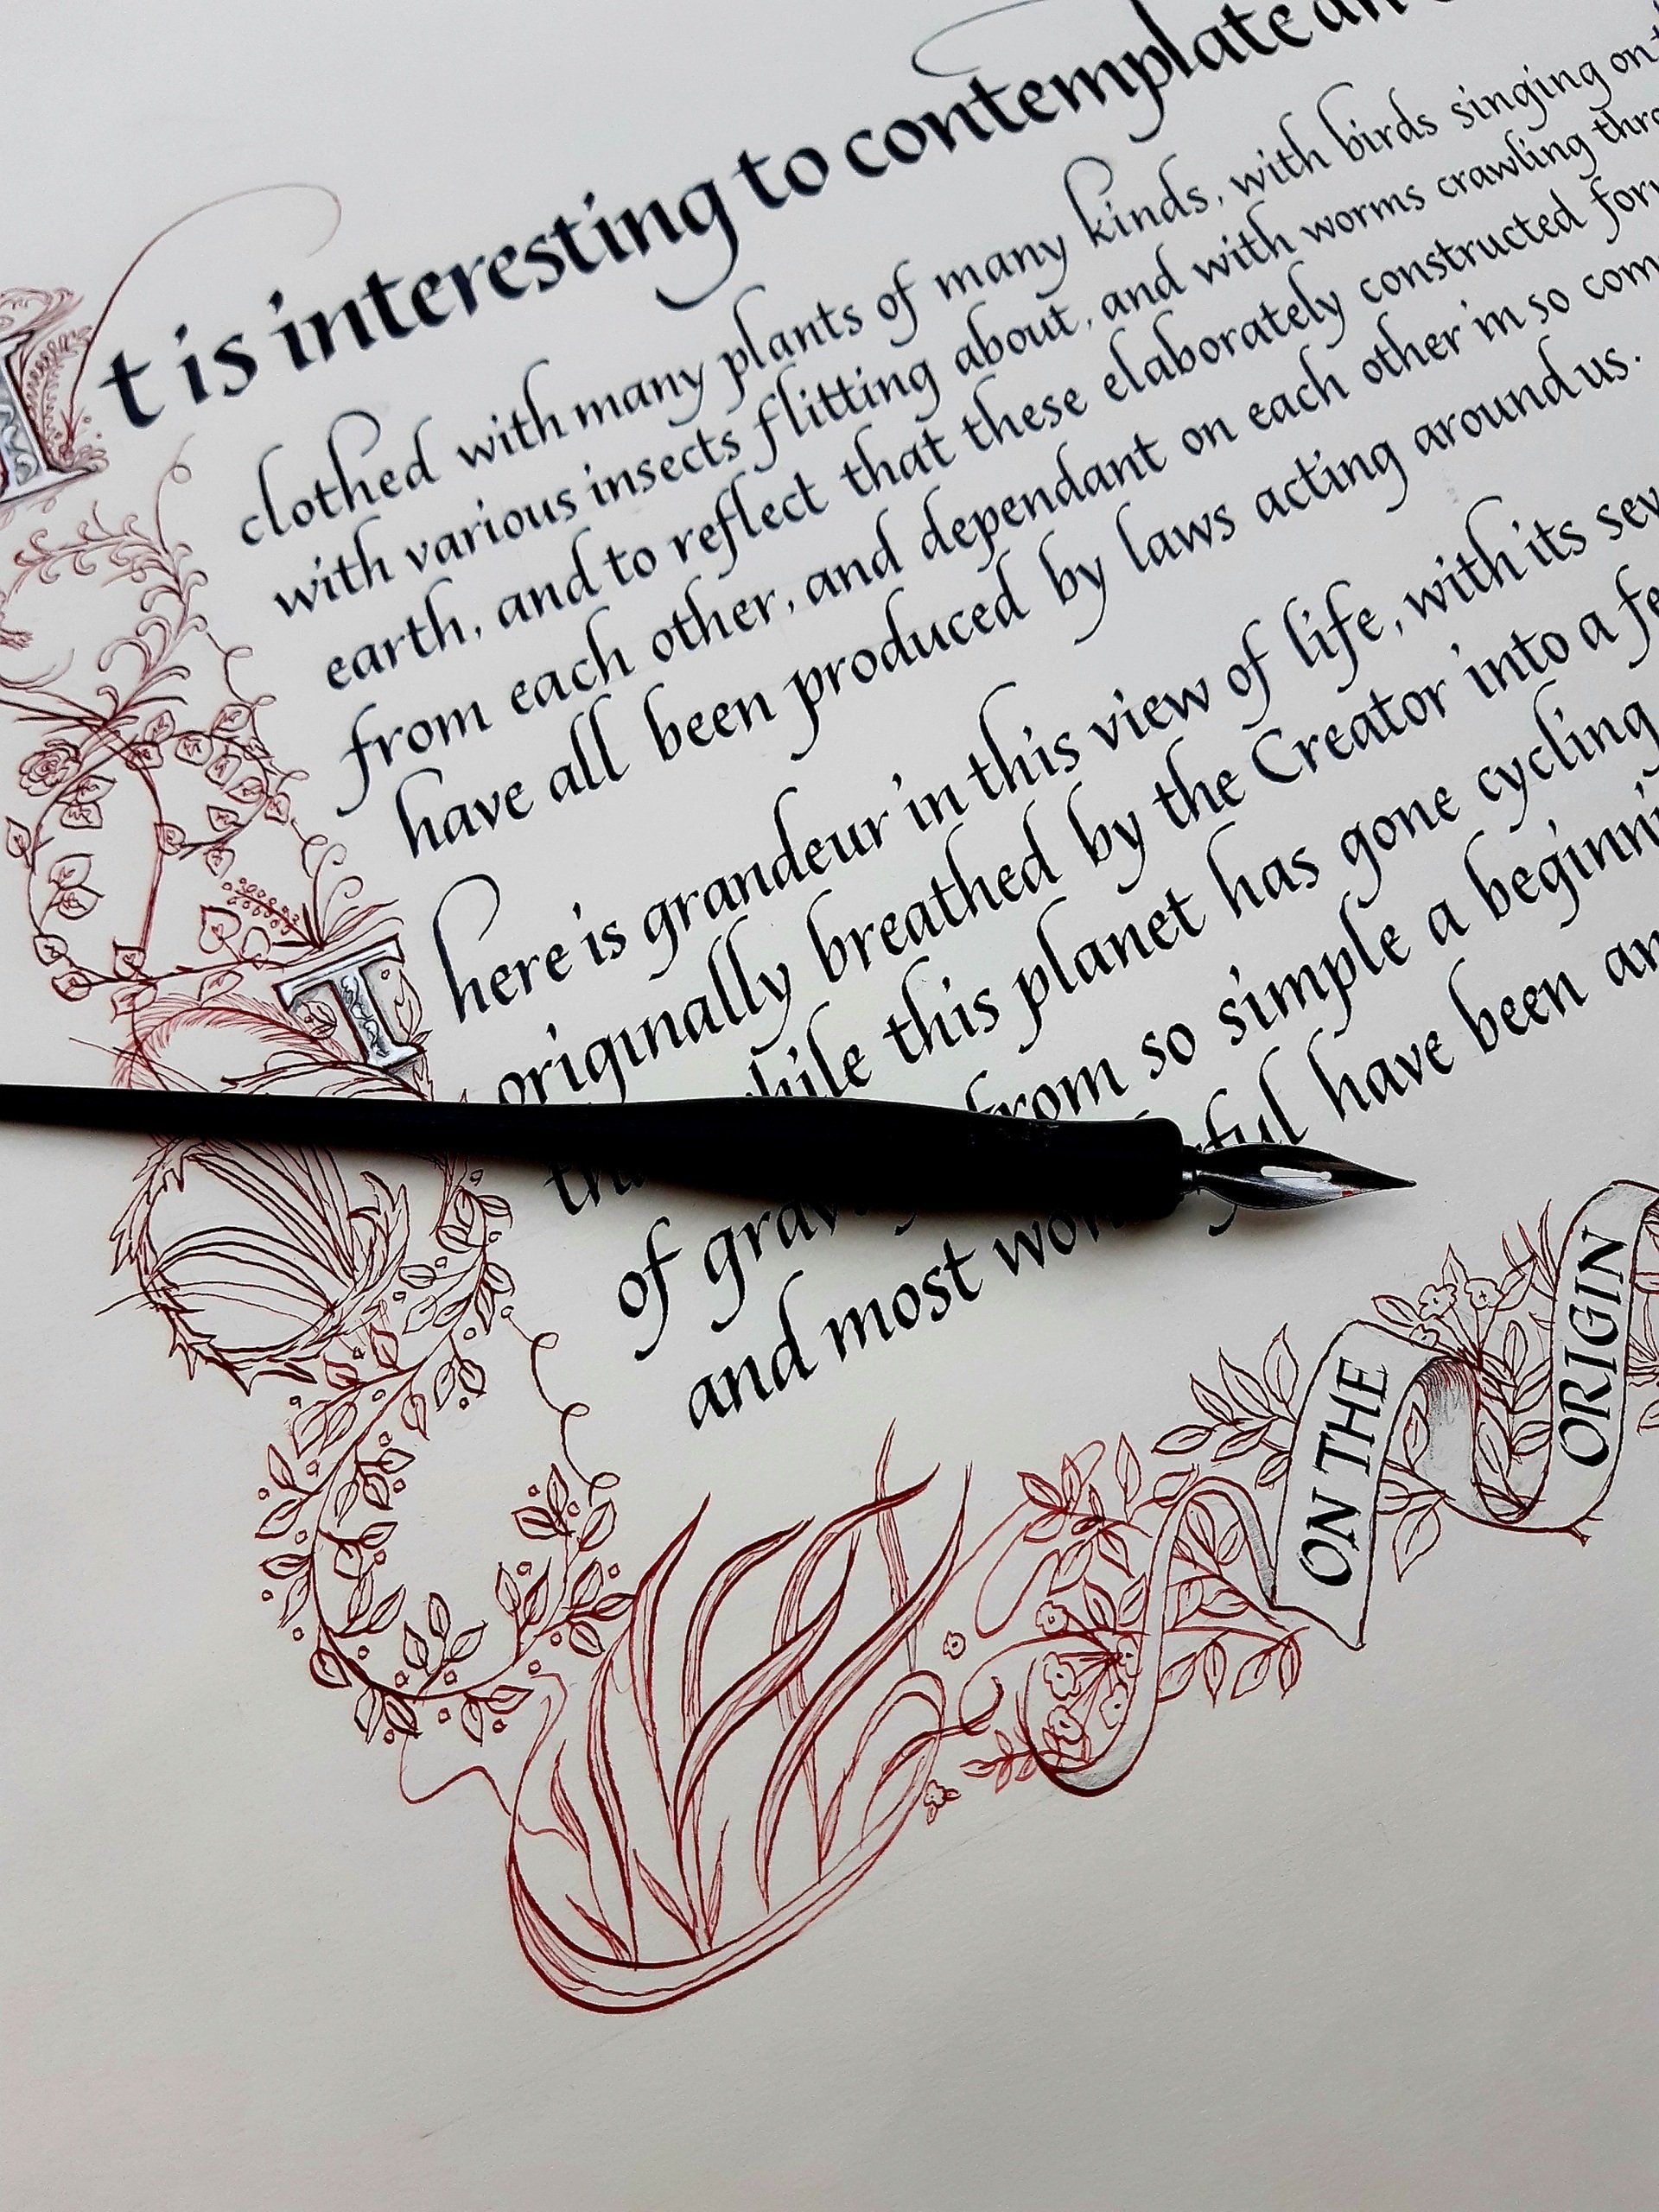 It is interesting to contemplate an
clothed with many plants of many kinds, with birds singing on
with various insects flitting about, and with worms crawling thro
earth, and to reflect that these elaborately constructed for
from each other, and dependant on each other in so com
have all been produced by laws acting around us.
There is grandeur in this view of life, with its sev
originally breathed by the Creator into a fe
hile this planet has gone cycling
from so simple a beginni
of grav ful have been an
and most won
ON THE
ORIGIN